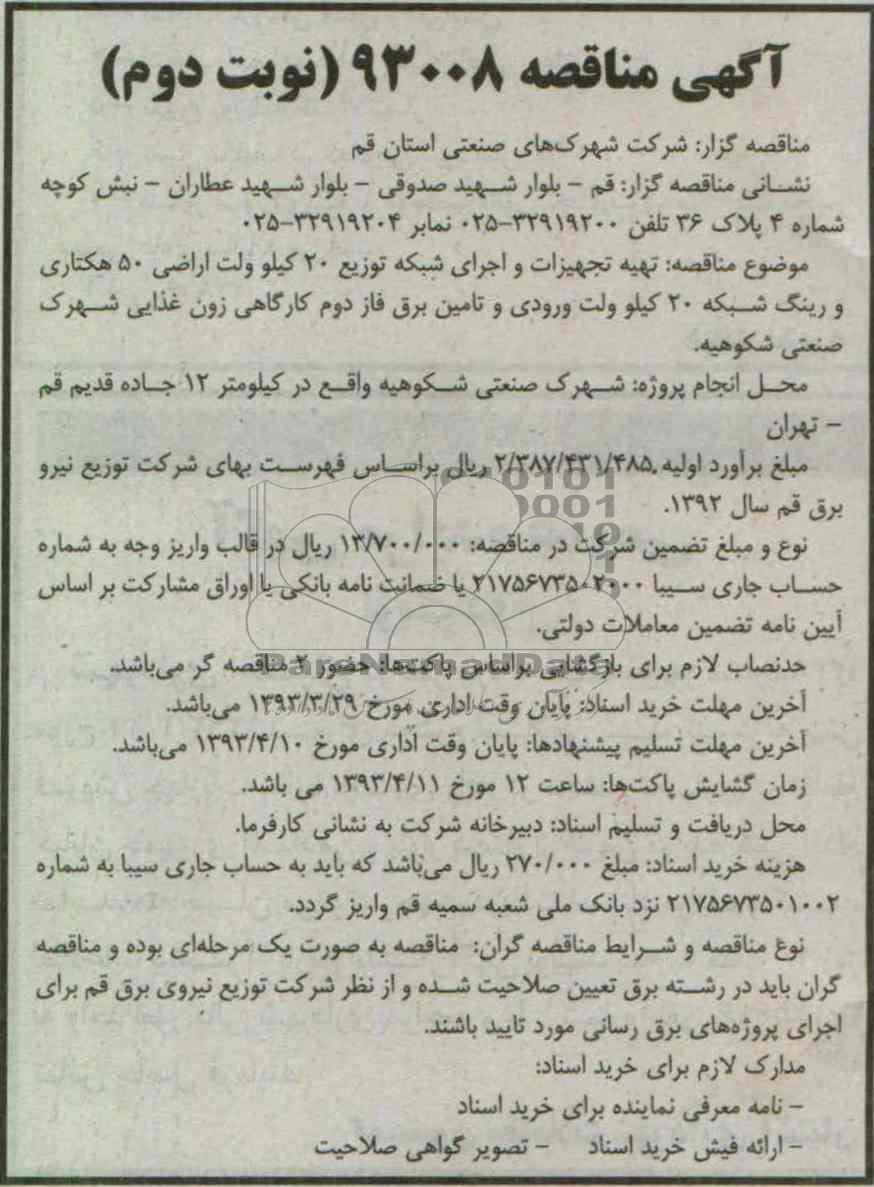 آگهی مناقصه ۹۳۰۰۸ (نوبت دوم)
مناقصه گزار: شرکت شهرک‌های صنعتی استان قم
نشانی مناقصه گزار: قم – بلوار شهید صدوقی – بلوار شهید عطاران – نبش کوچه
شماره ۴ پلاک ۳۶ تلفن ۳۲۹۱۹۲۰۰-۰۲۵ نمابر ۳۲۹۱۹۲۰۴-۰۲۵
موضوع مناقصه: تهیه تجهیزات و اجرای شبکه توزیع ۲۰ کیلو ولت اراضی ۵۰ هکتاری
و رینگ شبکه ۲۰ کیلو ولت ورودی و تامین برق فاز دوم کارگاهی زون غذایی شهرک
صنعتی شکوهیه.
محل انجام پروژه: شهرک صنعتی شکوهیه واقع در کیلومتر ۱۲ جاده قدیم قم
– تهران
مبلغ برآورد اولیه ۲/۳۸۷/۴۳۱/۴۸۵ ریال براساس فهرست بهای شرکت توزیع نیرو
برق قم سال ۱۳۹۲.
نوع و مبلغ تضمین شرکت در مناقصه: ۱۳/۷۰۰/۰۰۰ ریال در قالب واریز وجه به شماره
حساب جاری سیبا ۲۱۷۵۶۷۳۵۰۲۰۰۰ یا ضمانت نامه بانکی یا اوراق مشارکت بر اساس
آیین نامه تضمین معاملات دولتی.
حدنصاب لازم برای بازگشایی براساس پاکت‌ها: حضور ۲ مناقصه گر می‌باشد.
آخرین مهلت خرید اسناد: پایان وقت اداری مورخ ۱۳۹۳/۳/۲۹ می‌باشد.
آخرین مهلت تسلیم پیشنهادها: پایان وقت اداری مورخ ۱۳۹۳/۴/۱۰ می‌باشد.
زمان گشایش پاکت‌ها: ساعت ۱۲ مورخ ۱۳۹۳/۴/۱۱ می باشد.
محل دریافت و تسلیم اسناد: دبیرخانه شرکت به نشانی کارفرما.
هزینه خرید اسناد: مبلغ ۲۷۰/۰۰۰ ریال می‌باشد که باید به حساب جاری سیبا به شماره
۲۱۷۵۶۷۳۵۰۱۰۰۲ نزد بانک ملی شعبه سمیه قم واریز گردد.
نوع مناقصه و شرایط مناقصه گران: مناقصه به صورت یک مرحله‌ای بوده و مناقصه
گران باید در رشته برق تعیین صلاحیت شده و از نظر شرکت توزیع نیروی برق قم برای
اجرای پروژه‌های برق رسانی مورد تایید باشند.
مدارک لازم برای خرید اسناد:
– نامه معرفی نماینده برای خرید اسناد
– ارائه فیش خرید اسناد – تصویر گواهی صلاحیت
ParsNamadData